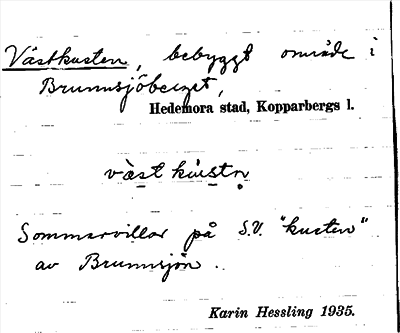 Västkusten, bebyggt område i
Brunnsjöberget,
Hedemora stad, Kopparbergs l.
väst kustn̥
Sommarvillor på S.V. "kusten"
av Brunnsjön.
Karin Hessling 1935.